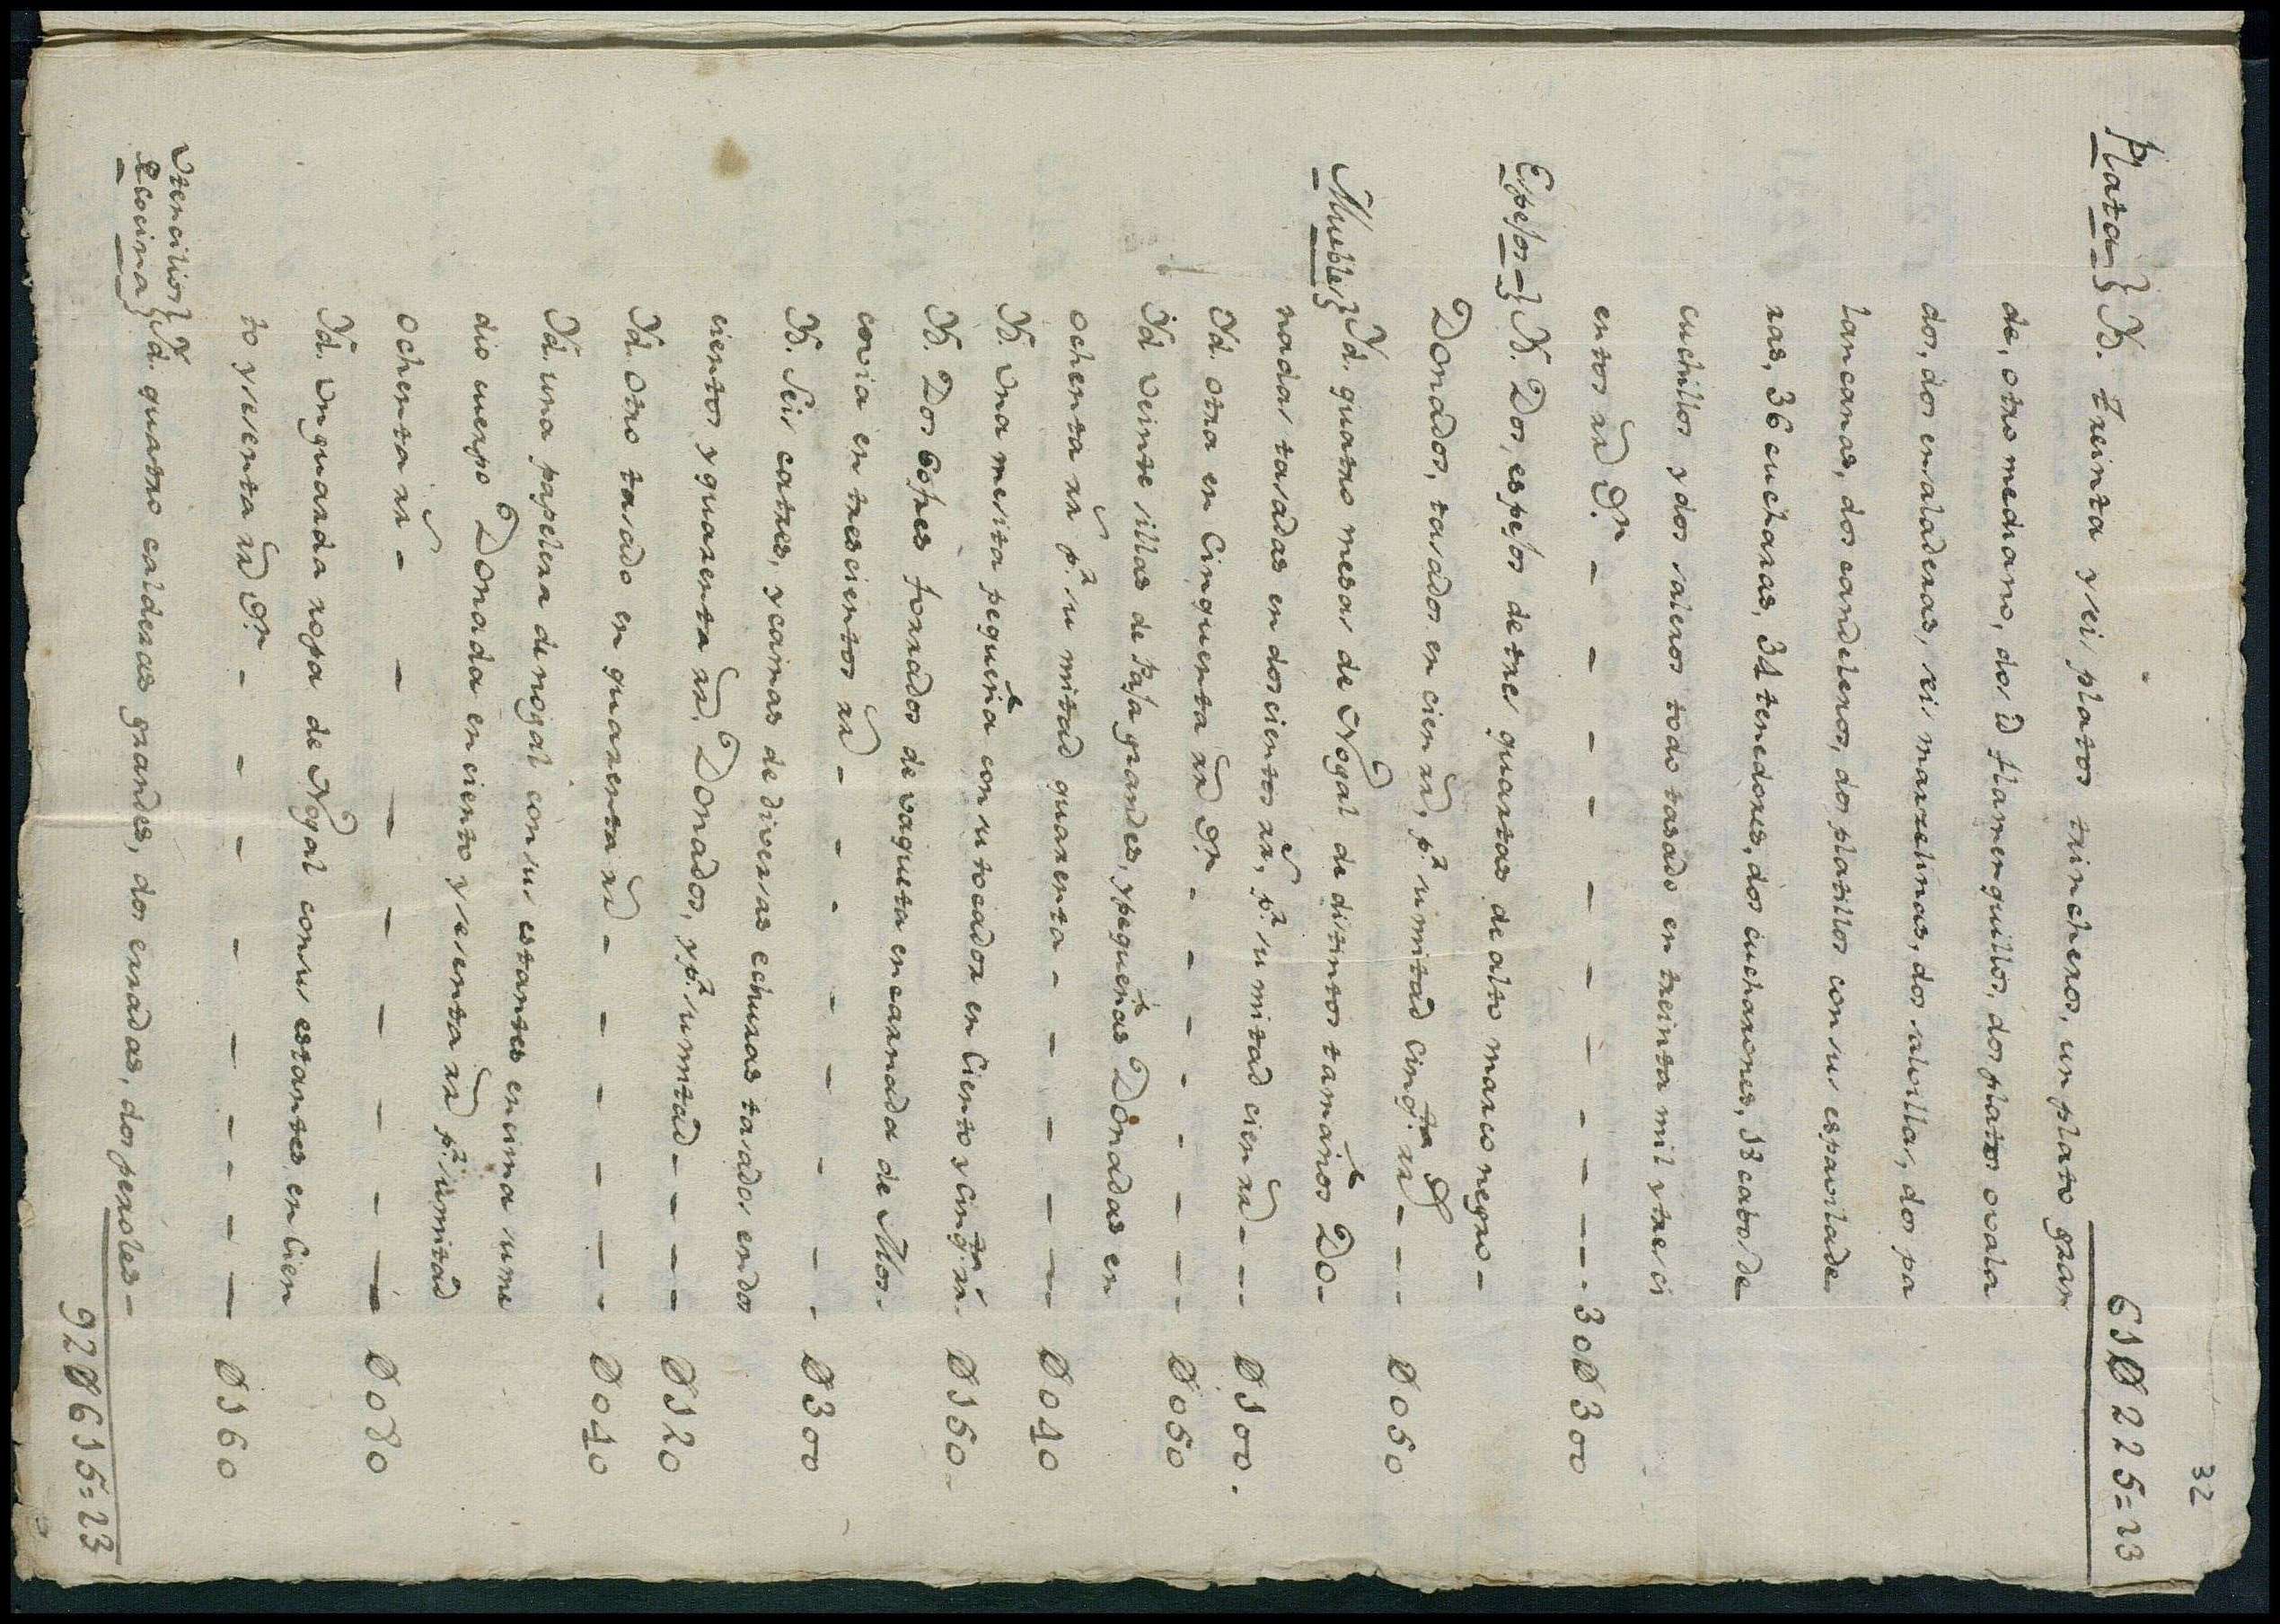 32
61Ø225=23
Plata} Yd. treinta y seis platos trincheros, un plato gran
de, otro mediano, dos Yd flamenquillos, dos platos ovala
dos, dos ensaladeras, seis marcelinas, dos salvillas, dos pa
lancanas, dos candeleros, dos platillos con sus espavilade
ras, 36 cucharas, 34 tenedores, dos cucharones, 18 cabos de
cuchillos y dos saleros todo tasado en treinta mil y tresci
entos rr.s Vn - - - - - - - - - - - 30Ø300
Espejos} Yd. Dos, espejos de tres quartas de alto marco negro -
Donados, tasados en cien rr.s, pr. su mitad cinq.ta rr.s - - - Ø050
Muebles} Yd. quatro mesas de Nogal de distintos tamaños Do-
nadas tasadas en doscientos rr.s, pr. su mitad cien rr.s - - - Ø100.
Yd. otra en Cinquenta rr.s Vn - - - - - - - Ø050
Yd veinte sillas de Paja grandes, y pequeñas Donadas en
ochenta rr.s pr. su mitad quarenta - - - - - Ø040
Yd. Una mesita pequeña con su tocador en Ciento y Cinq.ta rr.s - Ø150-
Yd. Dos Cofres forrados de vaqueta encarnada de Mos-
covia en trescientos rr.s - - - - - - - - Ø300
Yd. Seis catres, y camas de diversas echuras tasados en dos
cientos y quarenta rr.s Donados, y pr. su mitad - - - - Ø120
Yd. otro tasado en quarenta rr.s - - - - - - Ø040
Yd. una papelera de nogal con sus estantes encima su me
dio cuerpo Donada en ciento y sesenta rr.s pr. su mitad
ochenta rr.s - - - - - - - - Ø080
Yd. Un guarda ropa de Nogal con sus estantes en Cien
to y sesenta rr.s Vn - - - - - - - - - Ø160
Utencilios}
de cocina} Yd. quatro calderas grandes, dos erradas, dos peroles -
92Ø615=23